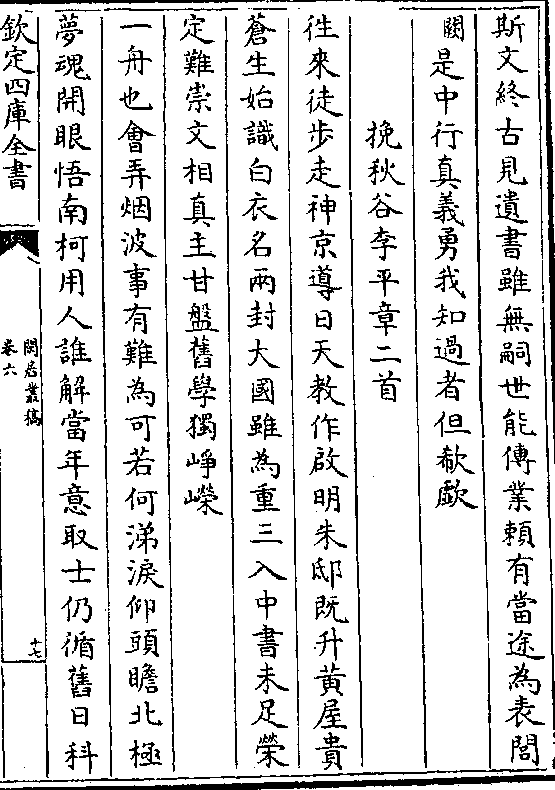 斯文終古見遺書雖無嗣世能傳業頼有當途為表閭
闕是中行真義勇我知過者但欷歔
挽秋谷李平章二首
徃來徒步走神京導日天教作啟明朱邸既升黃屋貴
蒼生始識白衣名兩封大國雖為重三入中書未足榮
定難崇文相真主甘盤舊學獨崢嶸
一舟也會弄烟波事有難為可若何涕淚仰頭瞻北極
夢魂開眼悟南柯用人誰解當年意取士仍循舊日科
欽定四庫全書
閒居叢稿
卷六
十七